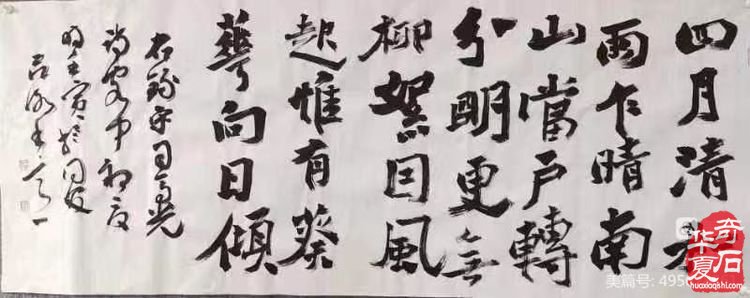 四月清和
雨乍晴南
山當戶轉
分明更無
柳絮因風
起惟有葵
華向日傾
右錄宋司馬光
詩客中初夏
美篇号: 495
奇石
华夏
huaxiaqishi.com